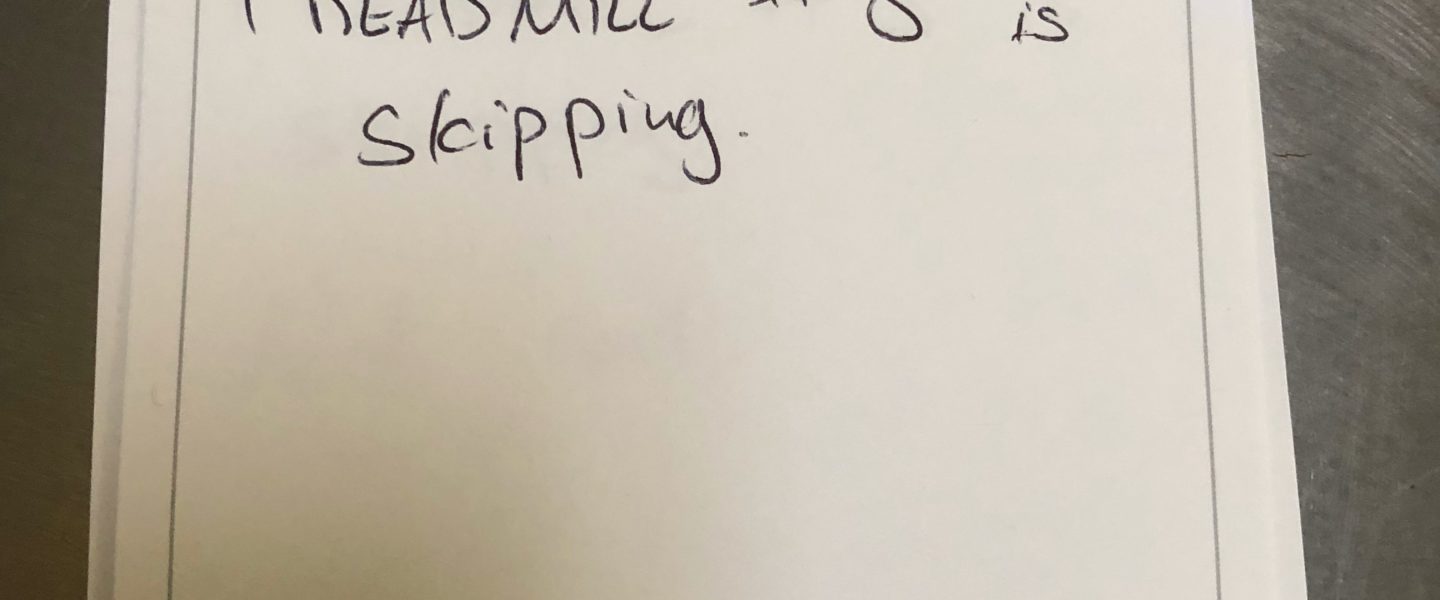 TREADMILL is
skipping.